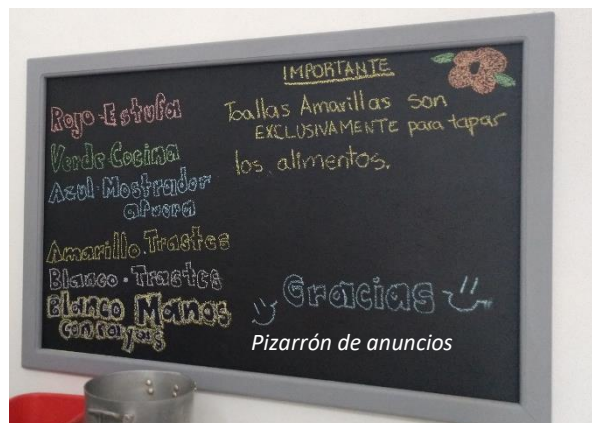 Rojo-Estufa
Verde-Cocina
Azul-Mostrador
afuera
Amarillo.Trastes
Blanco-Trastes
Blanco Manos
con rayas
IMPORTANTE
Toallas Amarillas son
EXCLUSIVAMENTE para tapar
los alimentos.
Gracias
Pizarrón de anuncios